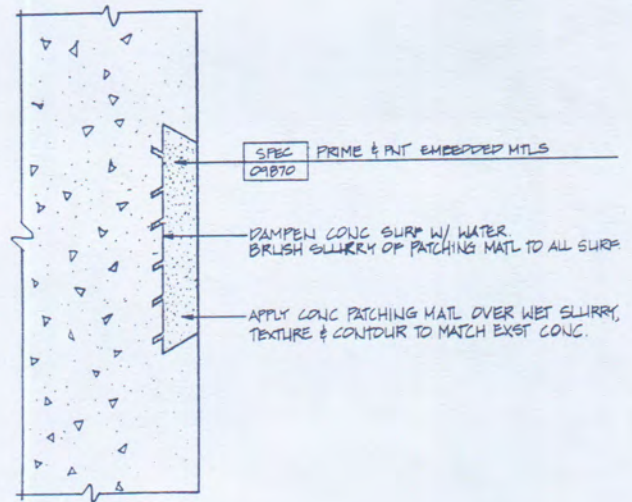 SPEC PRIME & PNT EMBEDDED MTLS
09870
DAMPEN CONC SURF W/ WATER.
BRUSH SLURRY OF PATCHING MATL TO ALL SURF.
APPLY CONC PATCHING MATL OVER WET SLURRY,
TEXTURE & CONTOUR TO MATCH EXST CONC.